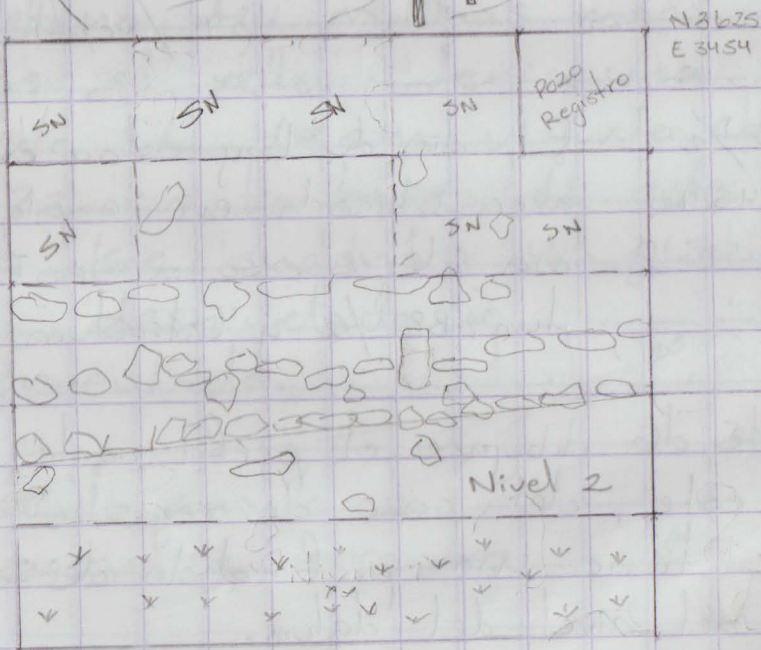 N3625
E 3454
SN
SN
SN
SN
Pozo
Registro
SN
SN
SN
Nivel 2